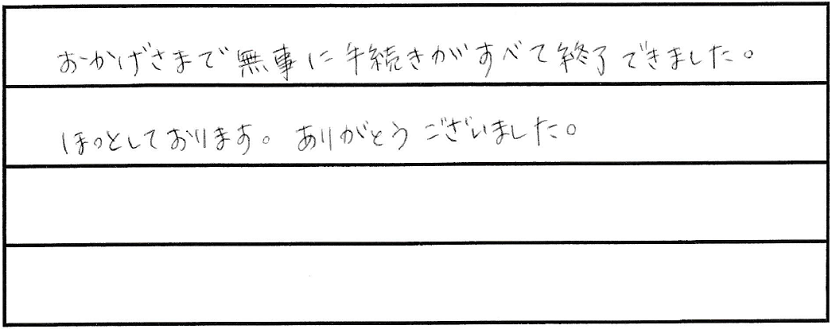 おかげさまで無事に手続きがすべて終了できました。
ほっとしております。ありがとうございました。